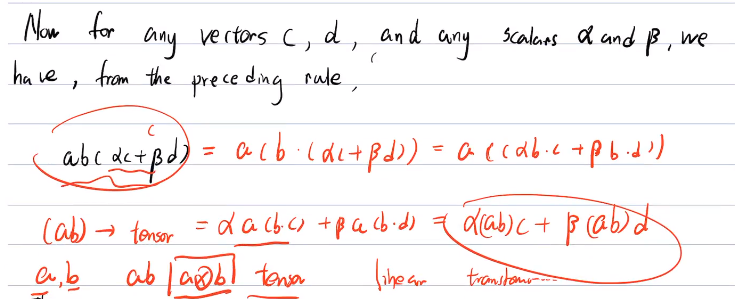 Now for any vectors c, d, and any scalars α and β, we
have, from the preceding rule,
ab(αc+βd) = a(b·(αc+βd)) = a((αb·c+βb·d))
(ab) → tensor = αa(b·c) + βa(b·d) = α(ab)c + β(ab)d
a, b ab a⊗b tensor linear